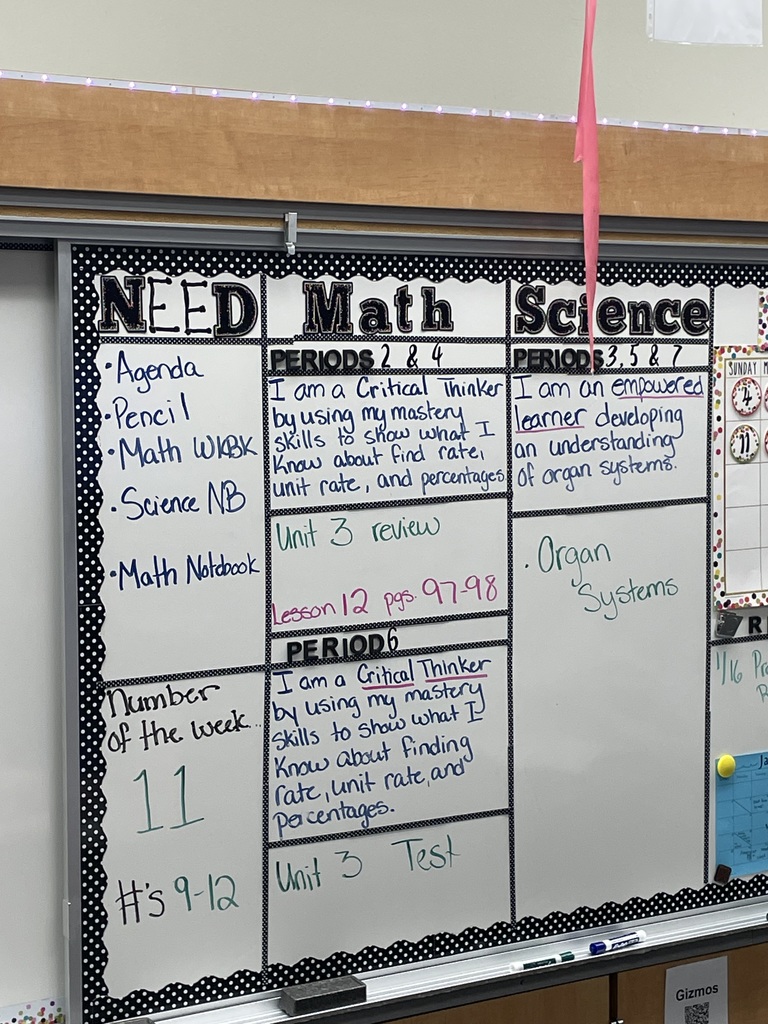 NEED
• Agenda
• Pencil
• Math WKBK
• Science NB
• Math Notebook
Number
of the week...
11
#'s 9-12
Math
PERIODS 2 & 4
I am a Critical Thinker
by using my mastery
skills to show what I
know about find rate,
unit rate, and percentages
Unit 3 review
Lesson 12 pgs. 97-98
PERIOD 6
I am a Critical Thinker
by using my mastery
skills to show what I
know about finding
rate, unit rate, and
percentages.
Unit 3 Test
Science
PERIODS 3, 5 & 7
I am an empowered
learner developing
an understanding
of organ systems.
• Organ
Systems
SUNDAY
4
11
1/16
Gizmos